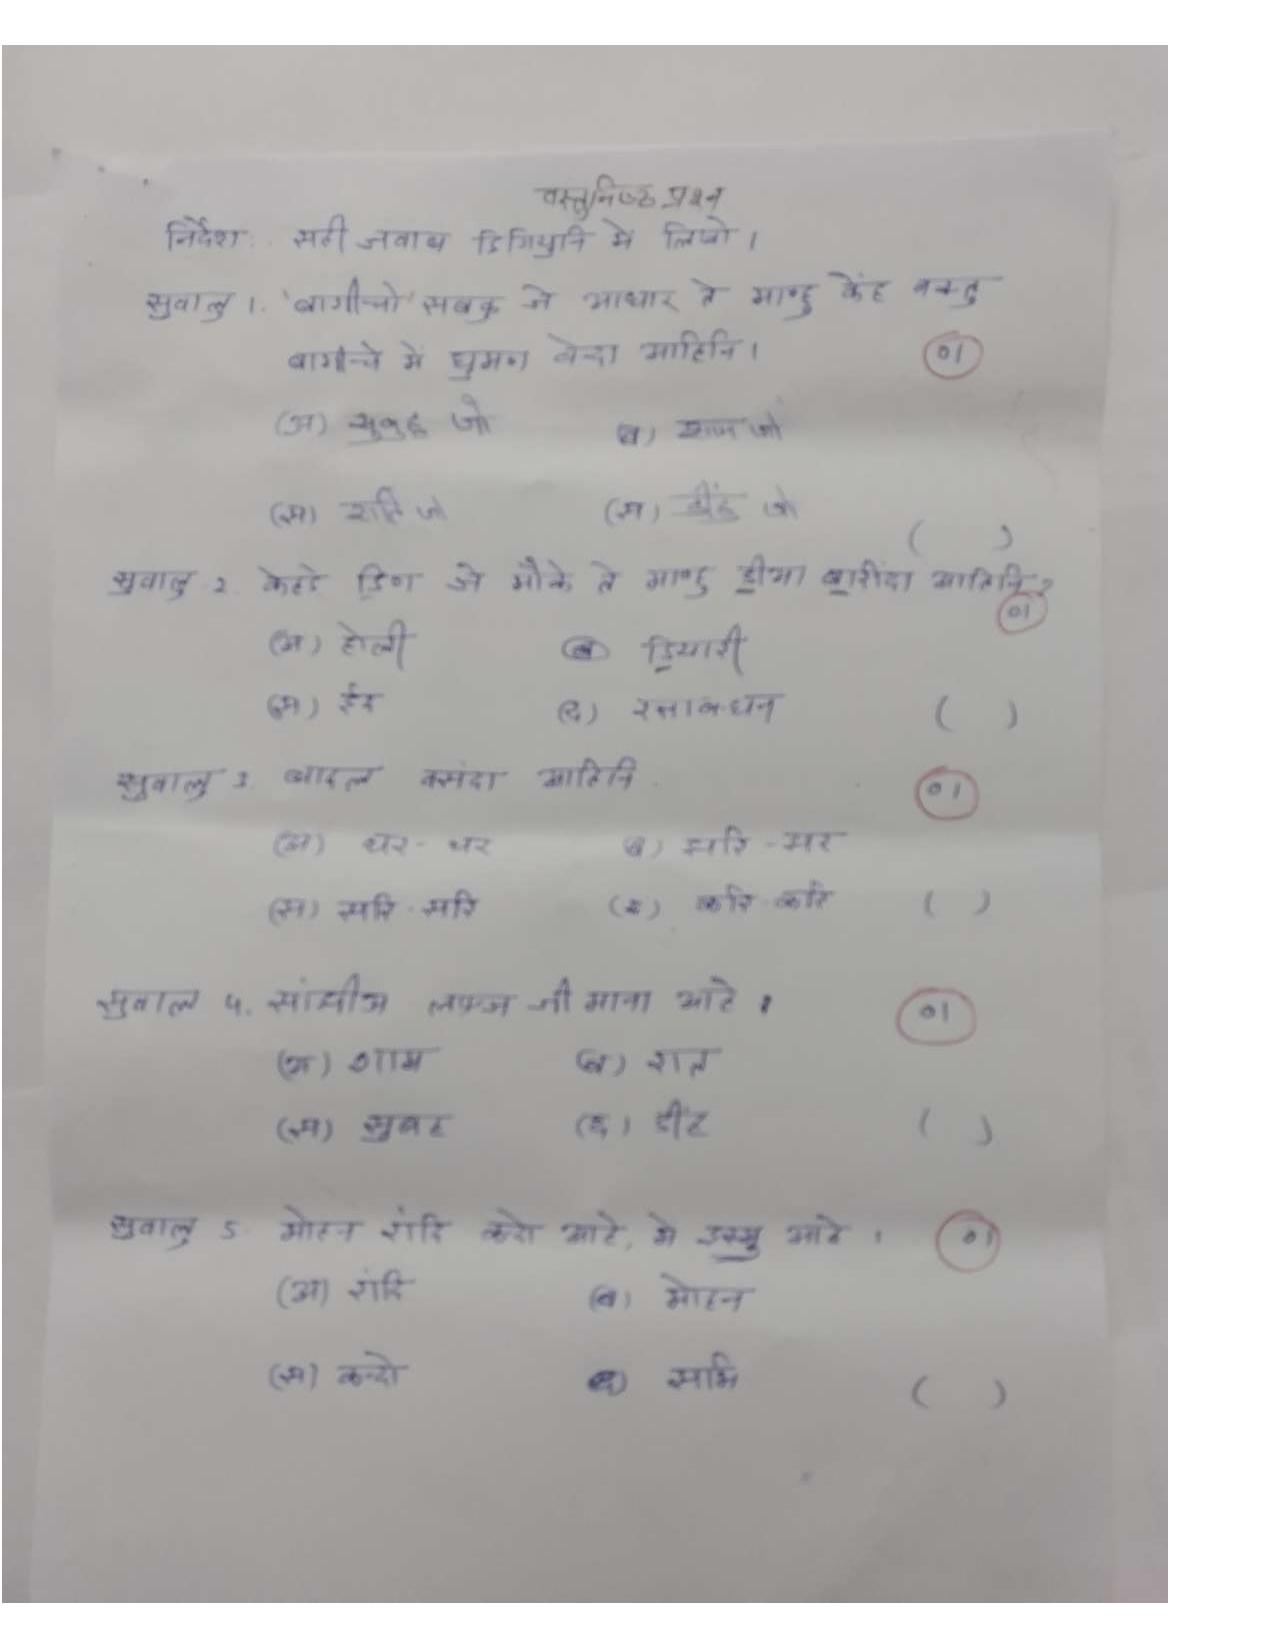 वस्तुनिष्ठ प्रश्न
निर्देश:- सही जवाब डिंगियुनि में लिखो।
सुवालु 1. 'बागीचो' सबकु जे आधार ते माण्हु केंह वक्तु
बागीचे में घुमण वेन्दा आहिनि। 01
(अ) सुबुह जो ब) शाम जो
(स) राति जो (द) डींह जो
( )
सुवालु 2. केहड़े डिण जे मौके ते माण्हु डीआ बारींदा आहिनि?
01
(अ) होली (ब) डियारी
(स) ईद (द) रक्षाबन्धन ( )
सुवालु 3. बादल वसंदा आहिनि. 01
(अ) थर-थर ब) झरि-झर
(स) सरि-सरि (द) करि-करि ( )
सुवाल 4. सांझीअ लफ्ज जी माना आहे। 01
(अ) शाम (ब) रात
(स) सुबह (द) डींह ( )
सुवालु 5. मोहन रांदि करे आहे, में इस्मु आहे। 01
(अ) रांदि (ब) मोहन
(स) कन्दो (द) सभि ( )